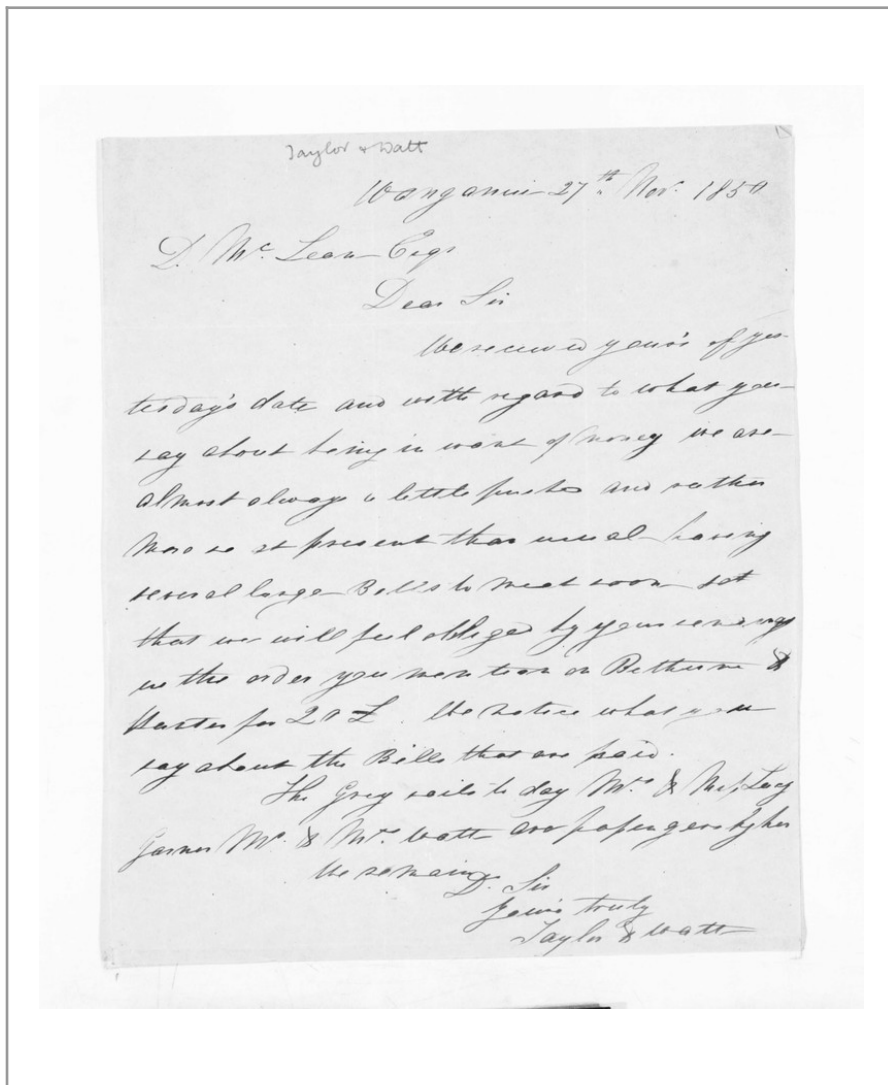 Taylor & Watt
Wanganui 27th Nov. 1850
D. McLean Esqr
Dear Sir
We received your's of yes-
terday's date and with regard to what you
say about being in want of money we are
almost always a little pushed and rather
more so at present than usual having
several large Bills to meet soon so
that we will feel obliged by your sending
us the order you mention on Bethune &
Hunter for 20£. We notice what you
say about the Bills that are paid.
The Grey sails to day Mrs & Miss
Mr. & Mrs. Watt are passengers by her
We remain
D. Sir
Your's truly
Taylor & Watt